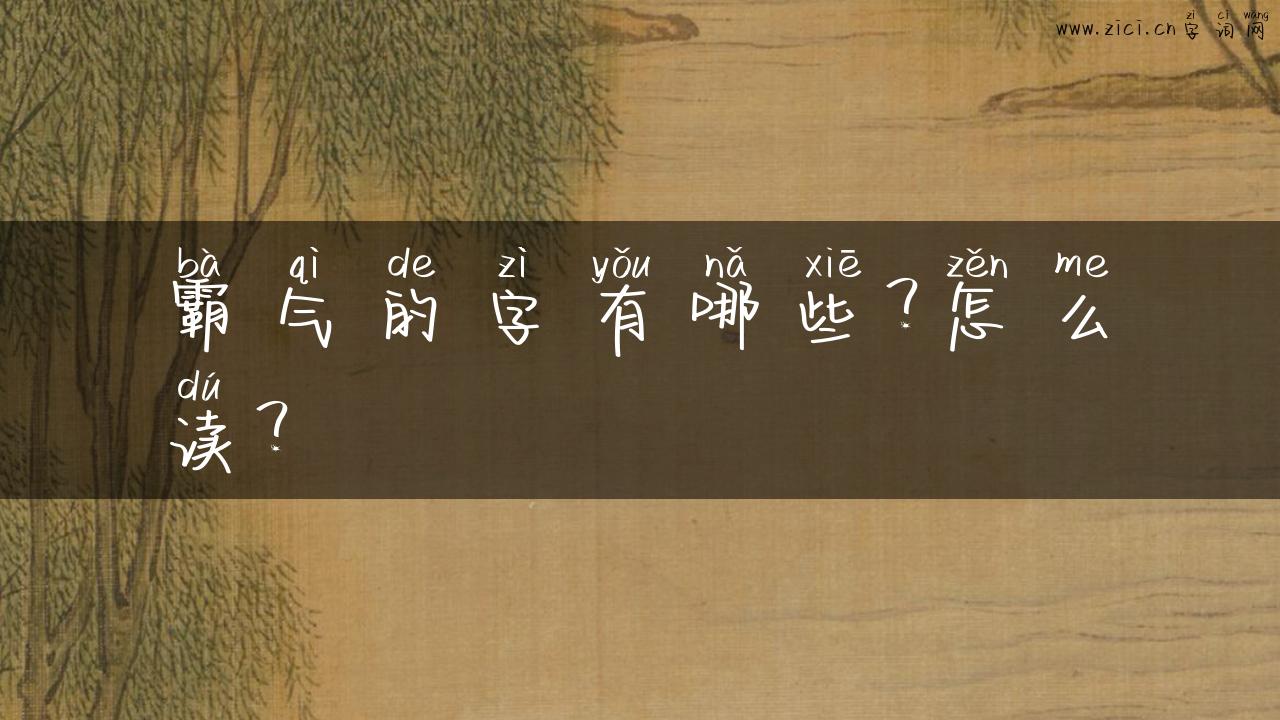 zì cí wǎng
www.zici.cn字词网
bà qì de zì yǒu nǎ xiē zěn me
霸气的字有哪些？怎么
dú
读？